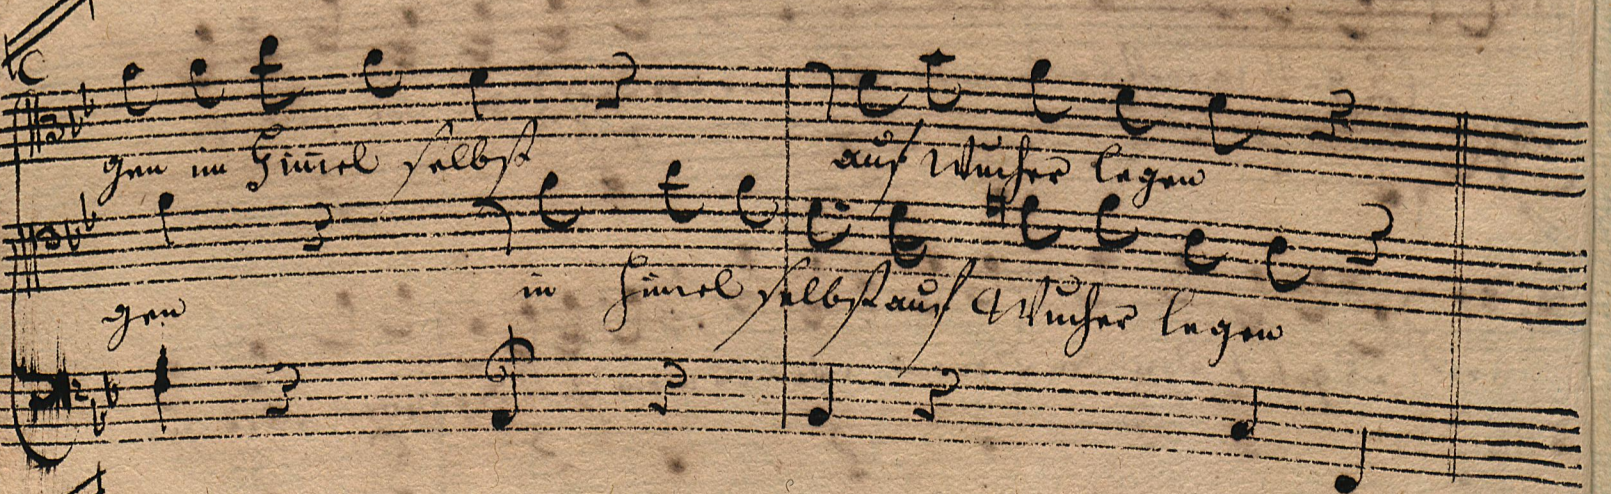 gen im Himel selbst auf Wucher legen
gen in Himel selbst auf Wucher legen